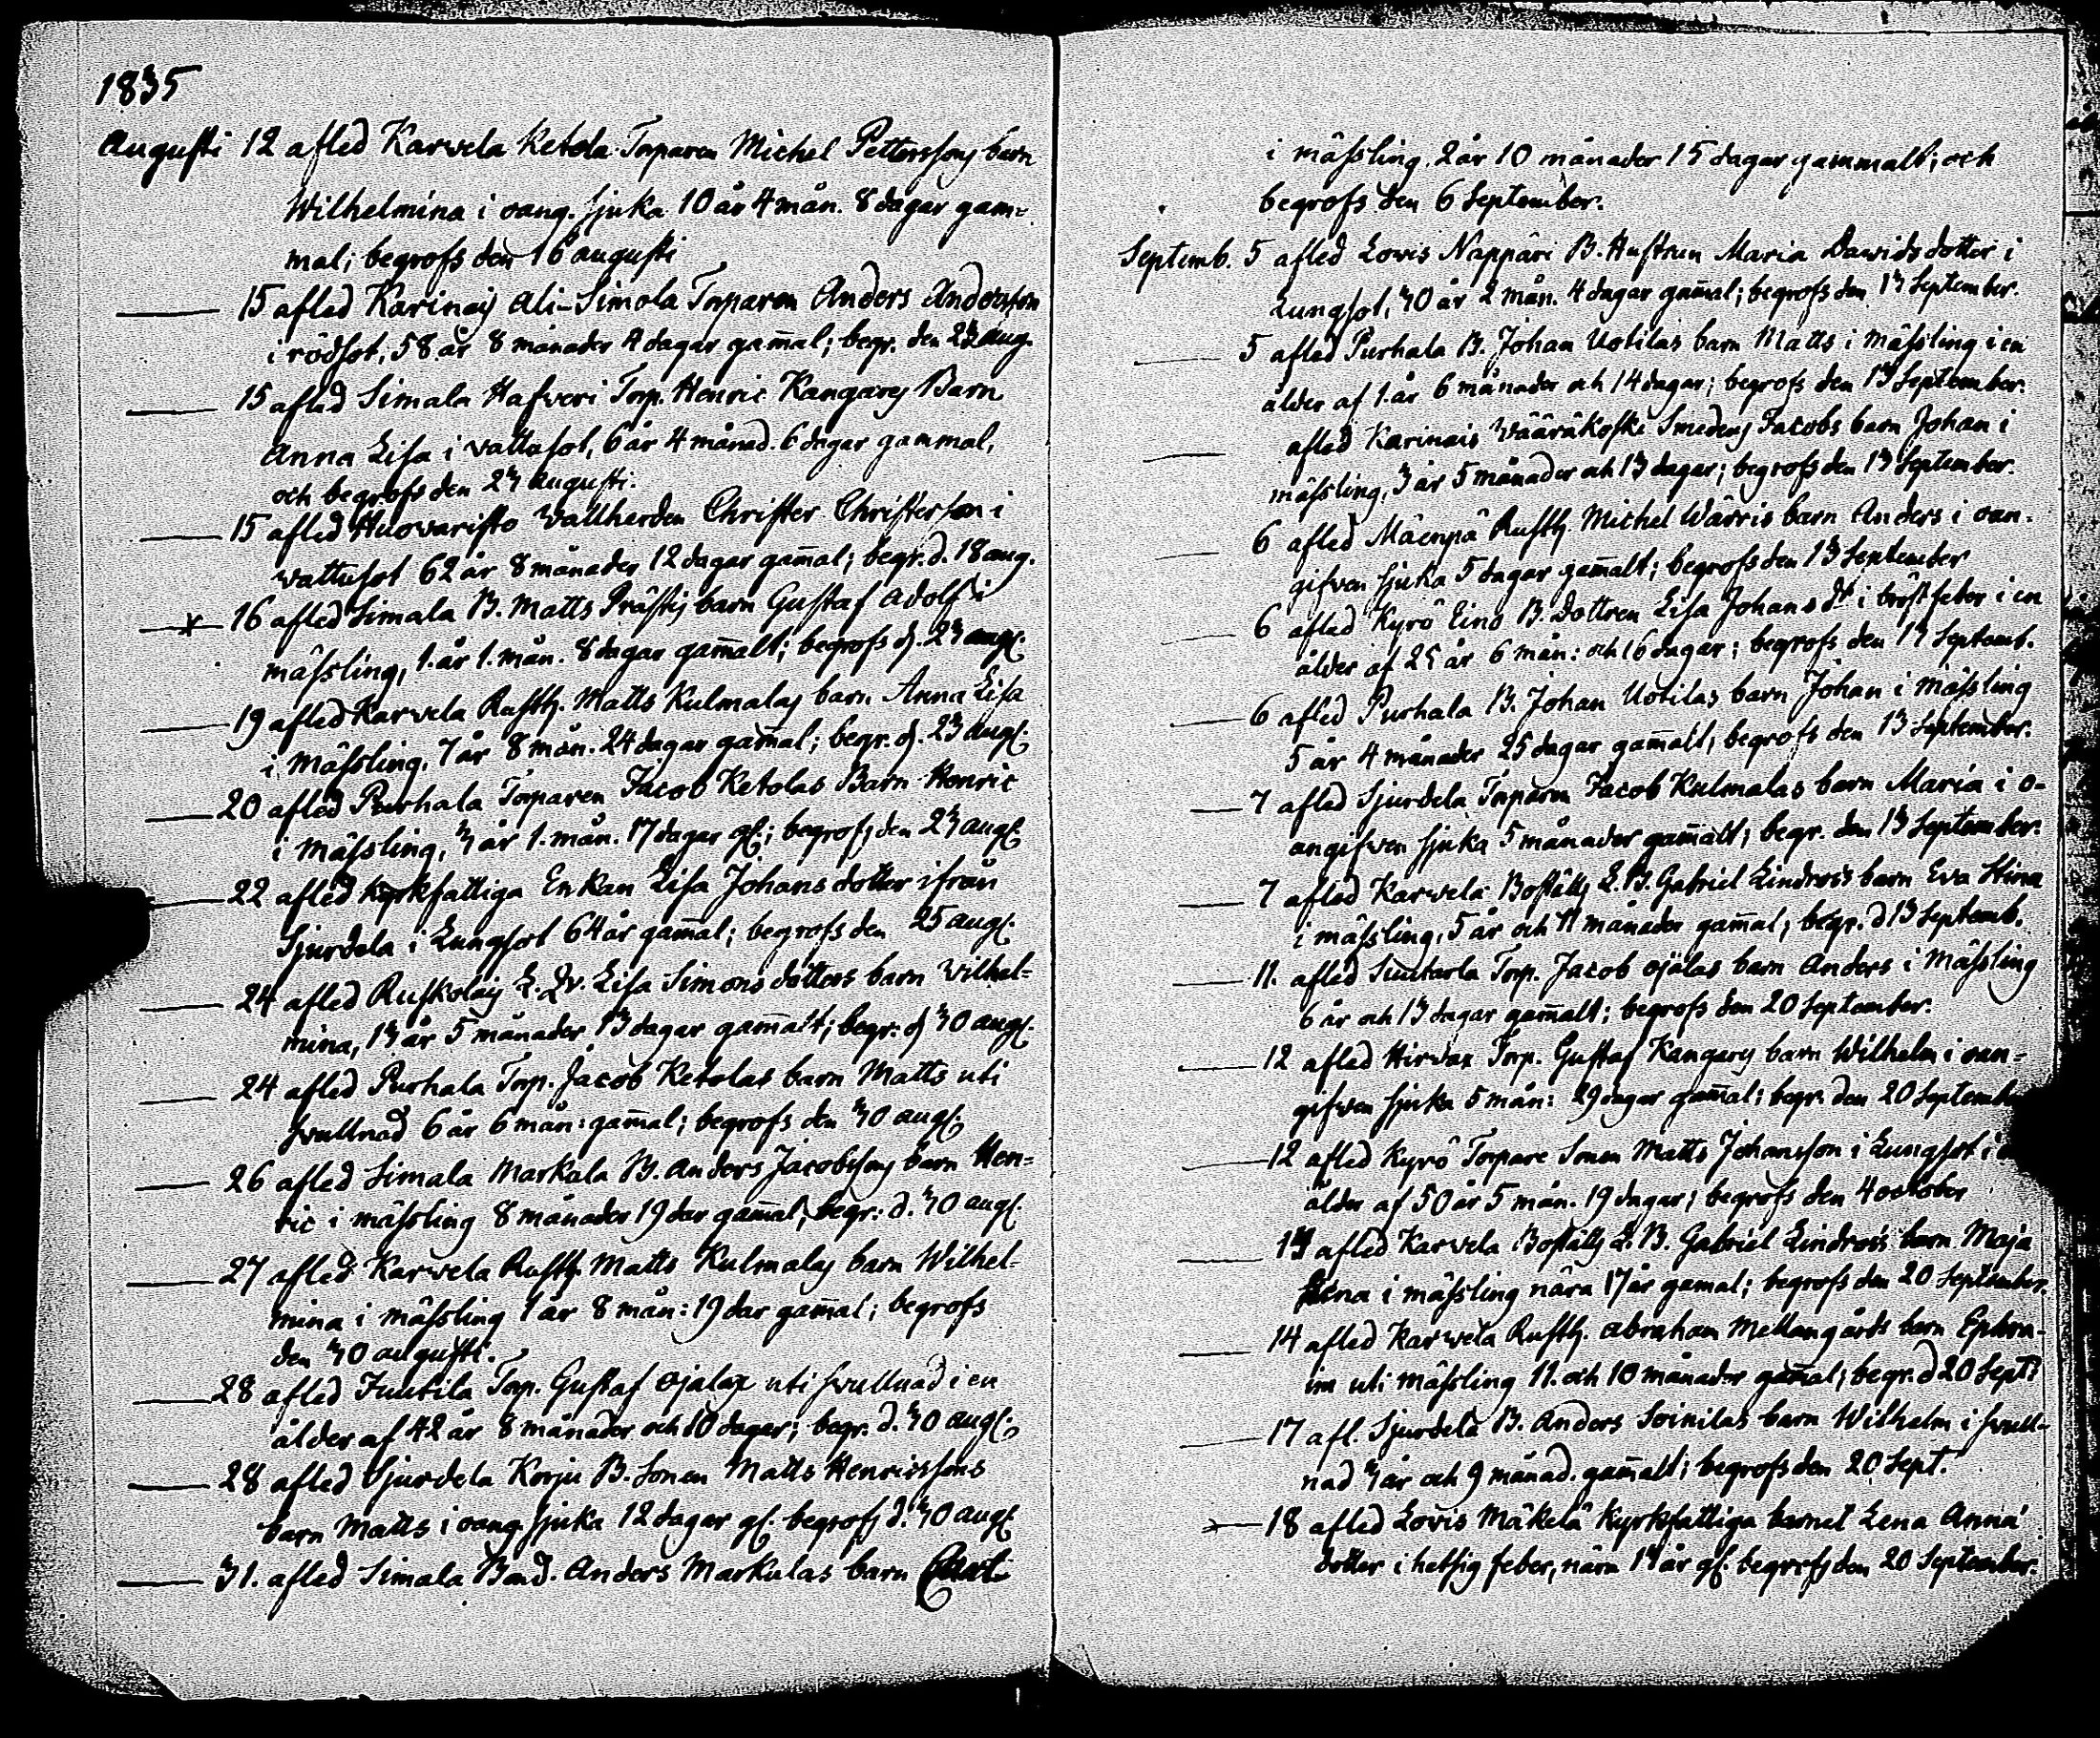 1835
Augusti 12 afled Karvela Ketola Torparen Michel Petterssons barn
Wilhelmina i oang. sjuka 10 år 4 mån. 8 dagar gam-
mal; begrofs den 16 augusti
15 afled Karinais Ali-Simola Torparen Anders Andersson
i rödsot, 58 år 8 månader 4 dagar gam̄al; begr. den 23 aug.
15 afled Simala Hafveri Torp. Henric Kangares Barn
Anna Lisa i vattusot, 6 år 4 månad. 6 dagar gammal,
och begrofs den 23 augusti.
15 afled Huovaristo Vallherden Christer Christerson i
vattusot 62 år 8 månader 12 dagar gam̄al; begr. d. 18 aug.
16 afled Simala B. Matts Prästis barn Gustaf Adolf i
mässling, 1. år 1. mån. 8 dagar gam̄alt; begrofs d. 23 aug.
19 afled Karvela Rusth. Matts Kulmalas barn Anna Lisa
i mässling, 7 år 8 mån. 24 dagar gam̄al; begr. d. 23 aug.
20 afled Purhala Torparen Jacob Ketolas Barn Henric
i mässling, 3 år 1. mån. 17 dagar gl.; begrofs den 23 aug.
22 afled kyrkfattiga Enkan Lisa Johans dotter ifrån
Sjurdela i Lungsot 64 år gam̄al; begrofs den 25 aug.
24 afled Ruskolais L. Qv. Lisa Simons dotters barn Vilhel-
mina, 13 år 5 månader 13 dagar gam̄alt; begr. d 30 aug.
24 afled Purhala Torp. Jacob Ketolas barn Matts uti
svullnad 6 år 6 mån: gam̄al; begrofs den 30 aug.
26 afled Simala Markala B. Anders Jacobssons barn Hen-
ric i mässling 8 månader 19 dar gam̄al, begr: d. 30 aug.
27 afled Karvela Rusth. Matts Kulmalas barn Wilhel-
mina i mässling 1 år 8 mån: 19 dar gam̄al; begrofs
den 30 augusti.
28 afled Juutila Torp. Gustaf Ojala uti svullnad i en
ålder af 42 år 8 månader och 10 dagar; begr. d. 30 aug.
28 afled Sjurdela Korju B. Sonen Matts Henricssons
barn Matts i oang. sjuka 12 dagar gl. begrofs d. 30 aug.
31. afled Simala Bond. Anders Markulas barn
i mässling, 2 år 10 månader 15 dagar gammalt; och
begrofs den 6 September.
Septemb. 5 afled Lovis Nappari B. Hustrun Maria Davids dotter i
Lungsot, 30 år 2 mån. 4 dagar gam̄al; begrofs den 13 September.
5 afled Purhala B. Johan Uotilas barn Matts i mässling i en
ålder af 1. år 6 månader och 14 dagar; begrofs den 13 September.
afled Karinais Wääräkoski Smedens Jacobs barn Johan i
mässling, 3 år 5 månader och 13 dagar; begrofs den 13 September.
6 afled Mäenpä Rusth. Michel Wärris barn Anders i oan-
gifven sjuka 5 dagar gam̄alt; begrofs den 13 September
6 afled Kyrö Eino B. Dottren Lisa Johans dr i bröstfeber i en
ålder af 25 år 6 mån: och 16 dagar; begrofs den 13 Septemb.
6 afled Purhala B. Johan Uotilas barn Johan i mässling
5 år 4 månader 25 dagar gam̄alt, begrofs den 13 September.
7 afled Sjurdela Torparen Jacob Kulmalas barn Maria i o-
angifven sjuka 5 månader gam̄alt; begr. den 13 September.
7 afled Karvela Boställs L. B. Gabriel Lindrois barn Eva Stina
i mässling, 5 år och 11 månader gam̄al; begr. d 13 Septemb.
11. afled Suutarla Torp. Jacob Ojalas barn Anders i mässling
6 år och 13 dagar gam̄alt; begrofs den 20 September.
12 afled Hirvax Torp. Gustaf Kangares barn Wilhelm i oan-
gifven sjuka 5 mån: 29 dagar gam̄al; begr. den 20 Septembe
12 afled Kyrö Torpare Sonen Matts Johansson i Lungsot i
ålder af 50 år 5 mån. 19 dagar; begrofs den 4 october
14 afled Karvela Boställs L. B. Gabriel Lindrois barn Maja
Stina i mässling nära 17 år gamal; begrofs den 20 September.
14 afled Karvela Rusth. Abraham Mellangårds barn Ephra-
im uti mässling 11. och 10 månader gam̄al; begr. d 20 Sept.
17 afl. Sjurdela B. Anders Soinilas barn Wilhelm i svull-
nad 3 år och 9 månad. gam̄alt; begrofs den 20 Sept.
18 afled Lovis Mäkelä Kyrkfattiga barnet Lena Anna
dotter i hetsig feber, nära 13 år gl. begrofs den 20 September.